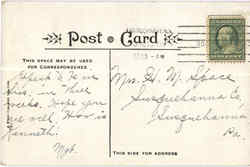 Post Card
THIS SPACE MAY BE USED
FOR CORRESPONDENCE
Expect to be in
this, in three
weeks. Hope you
are well. How is
Kenneth?
Myb.
Mrs. H. W. Space
Susquehanna Co
Susquehanna
Pa.
THIS SIDE FOR ADDRESS